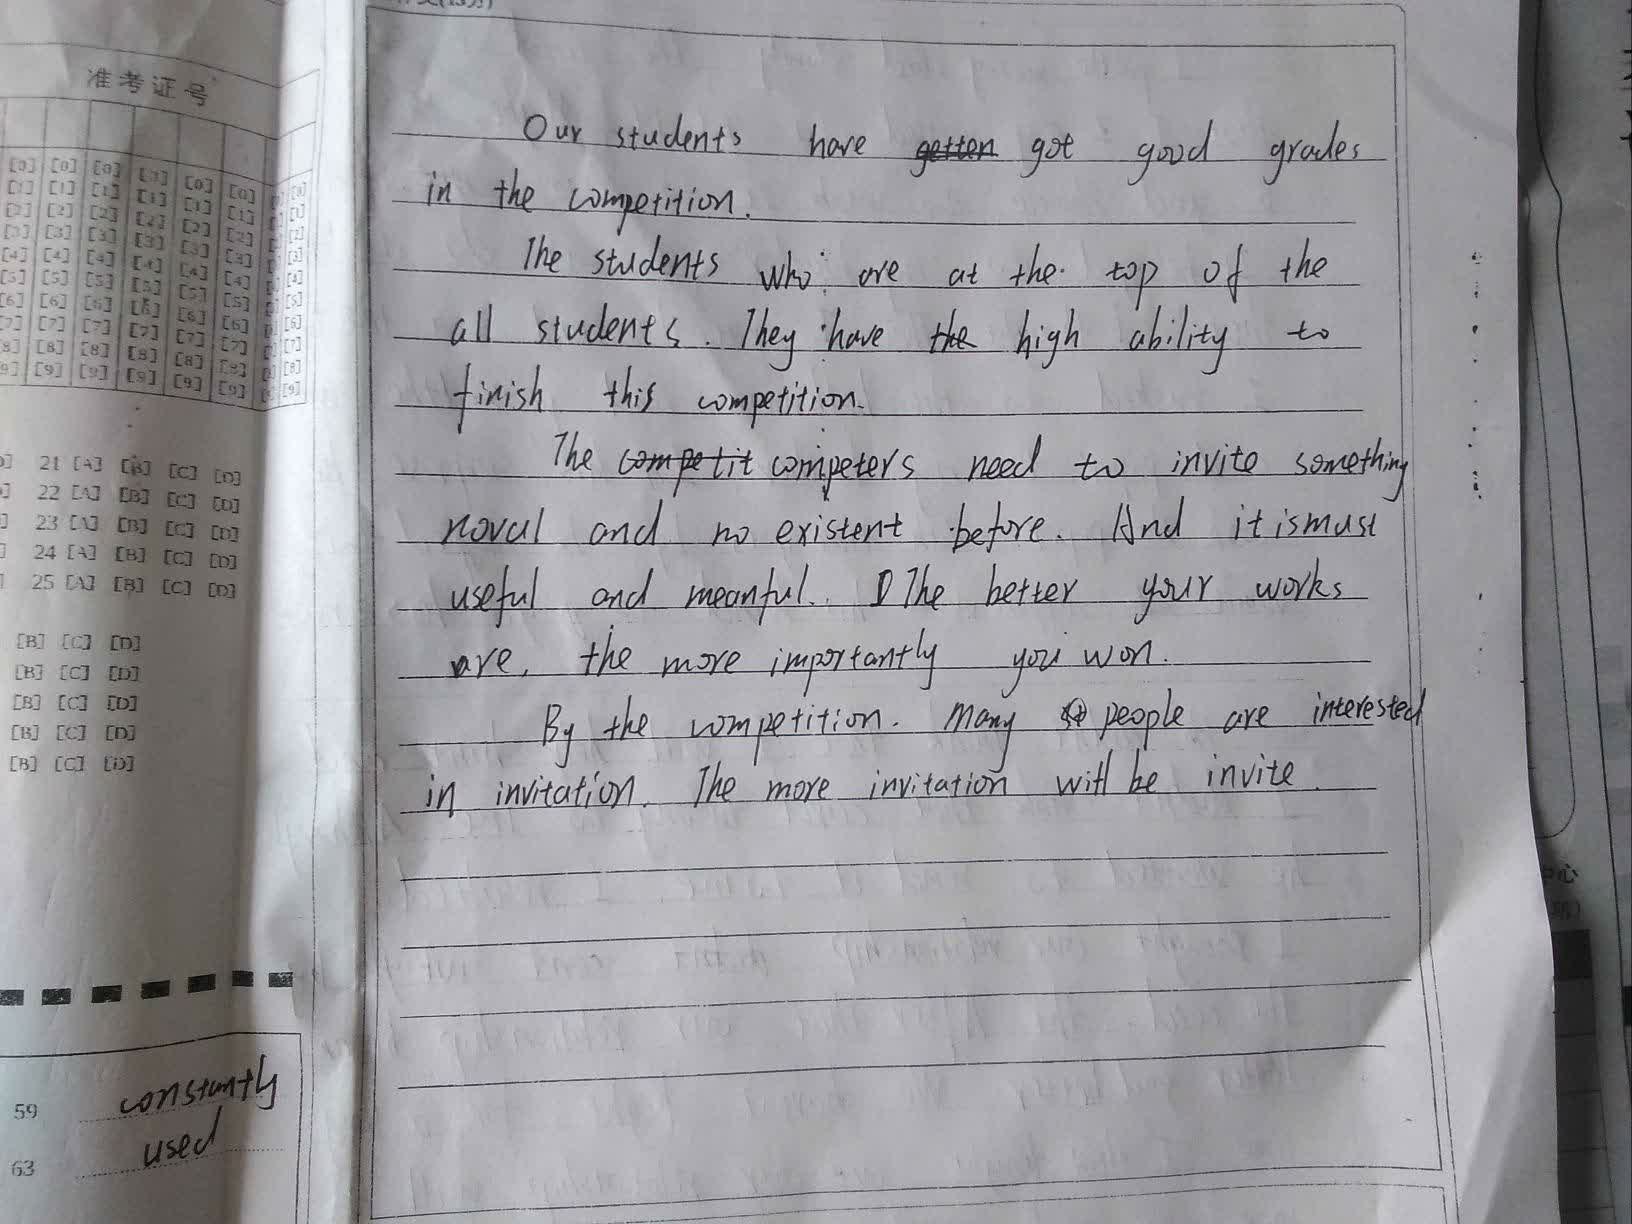 准考证号
[0] [0] [0] [0] [0] [0] [0]
[1] [1] [1] [1] [1] [1] [1]
[2] [2] [2] [2] [2] [2] [2]
[3] [3] [3] [3] [3] [3] [3]
[4] [4] [4] [4] [4] [4] [4]
[5] [5] [5] [5] [5] [5] [5]
[6] [6] [6] [6] [6] [6] [6]
[7] [7] [7] [7] [7] [7] [7]
[8] [8] [8] [8] [8] [8] [8]
[9] [9] [9] [9] [9] [9] [9]
21 [A] [B] [C] [D]
22 [A] [B] [C] [D]
23 [A] [B] [C] [D]
24 [A] [B] [C] [D]
25 [A] [B] [C] [D]
[B] [C] [D]
[B] [C] [D]
[B] [C] [D]
[B] [C] [D]
[B] [C] [D]
59 constantly
63 used
Our students have getten got good grades
in the competition.
The students who are at the top of the
all students. They have the high ability to
finish this competition.
The competit competers need to invite something
noval and no existent before. And it is must
useful and meanful. The better your works
are, the more importantly you won.
By the competition. Many people are interested
in invitation. The more invitation will be invite.